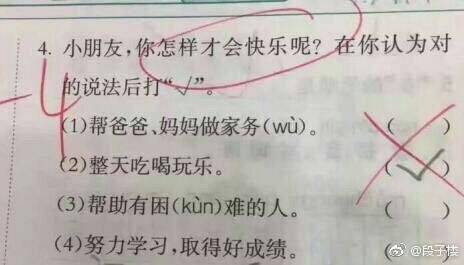 4. 小朋友,你怎样才会快乐呢? 在你认为对
的说法后打“√”。
-4
(1)帮爸爸、妈妈做家务(wù)。 ( )
(2)整天吃喝玩乐。 (√)
(3)帮助有困(kùn)难的人。 ( )
(4)努力学习,取得好成绩。
@段子楼